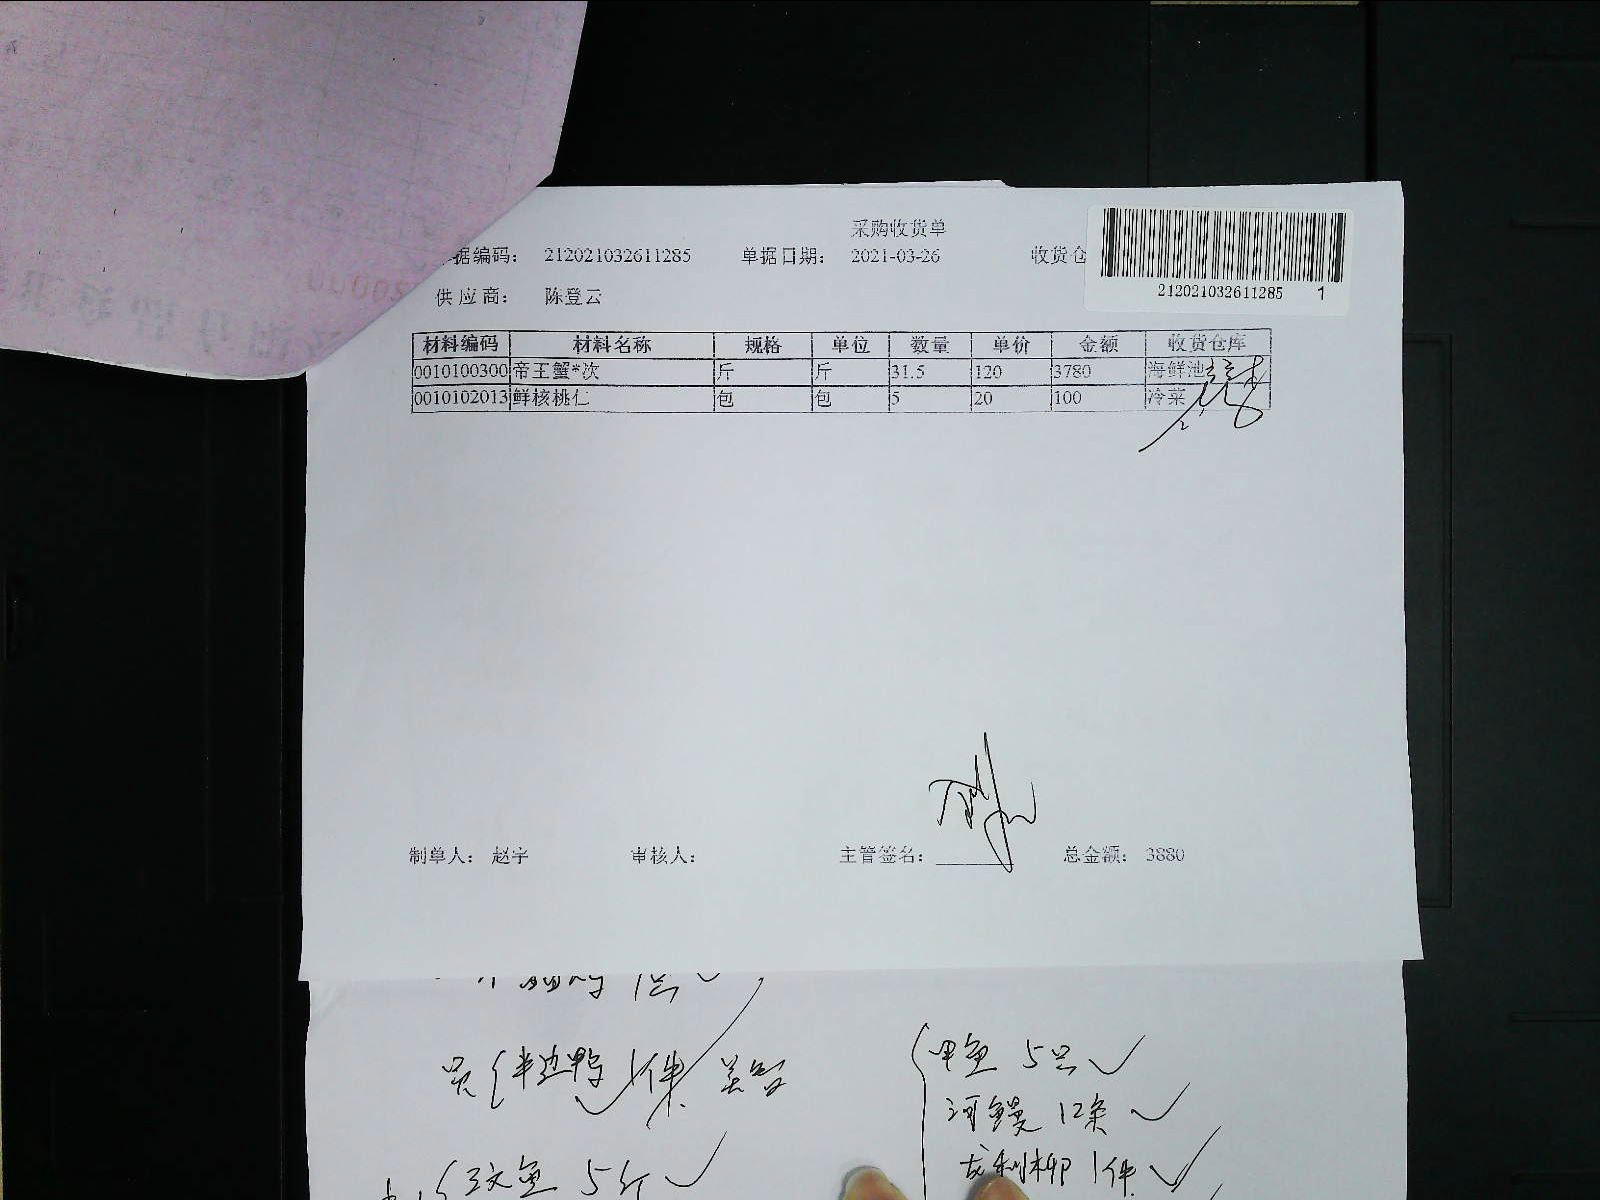 采购收货单
据编码： 212021032611285 单据日期： 2021-03-26 收货仓
212021032611285 1
供应商： 陈登云
材料编码 材料名称 规格 单位 数量 单价 金额 收货仓库
0010100300 帝王蟹*次 斤 斤 31.5 120 3780 海鲜池
0010102013 鲜核桃仁 包 包 5 20 100 冷菜
制单人： 赵宇 审核人： 主管签名： 总金额： 3880
半边鸭 1件
甲鱼 5只
河鳗 12条
龙利柳 1件
鱼 5斤